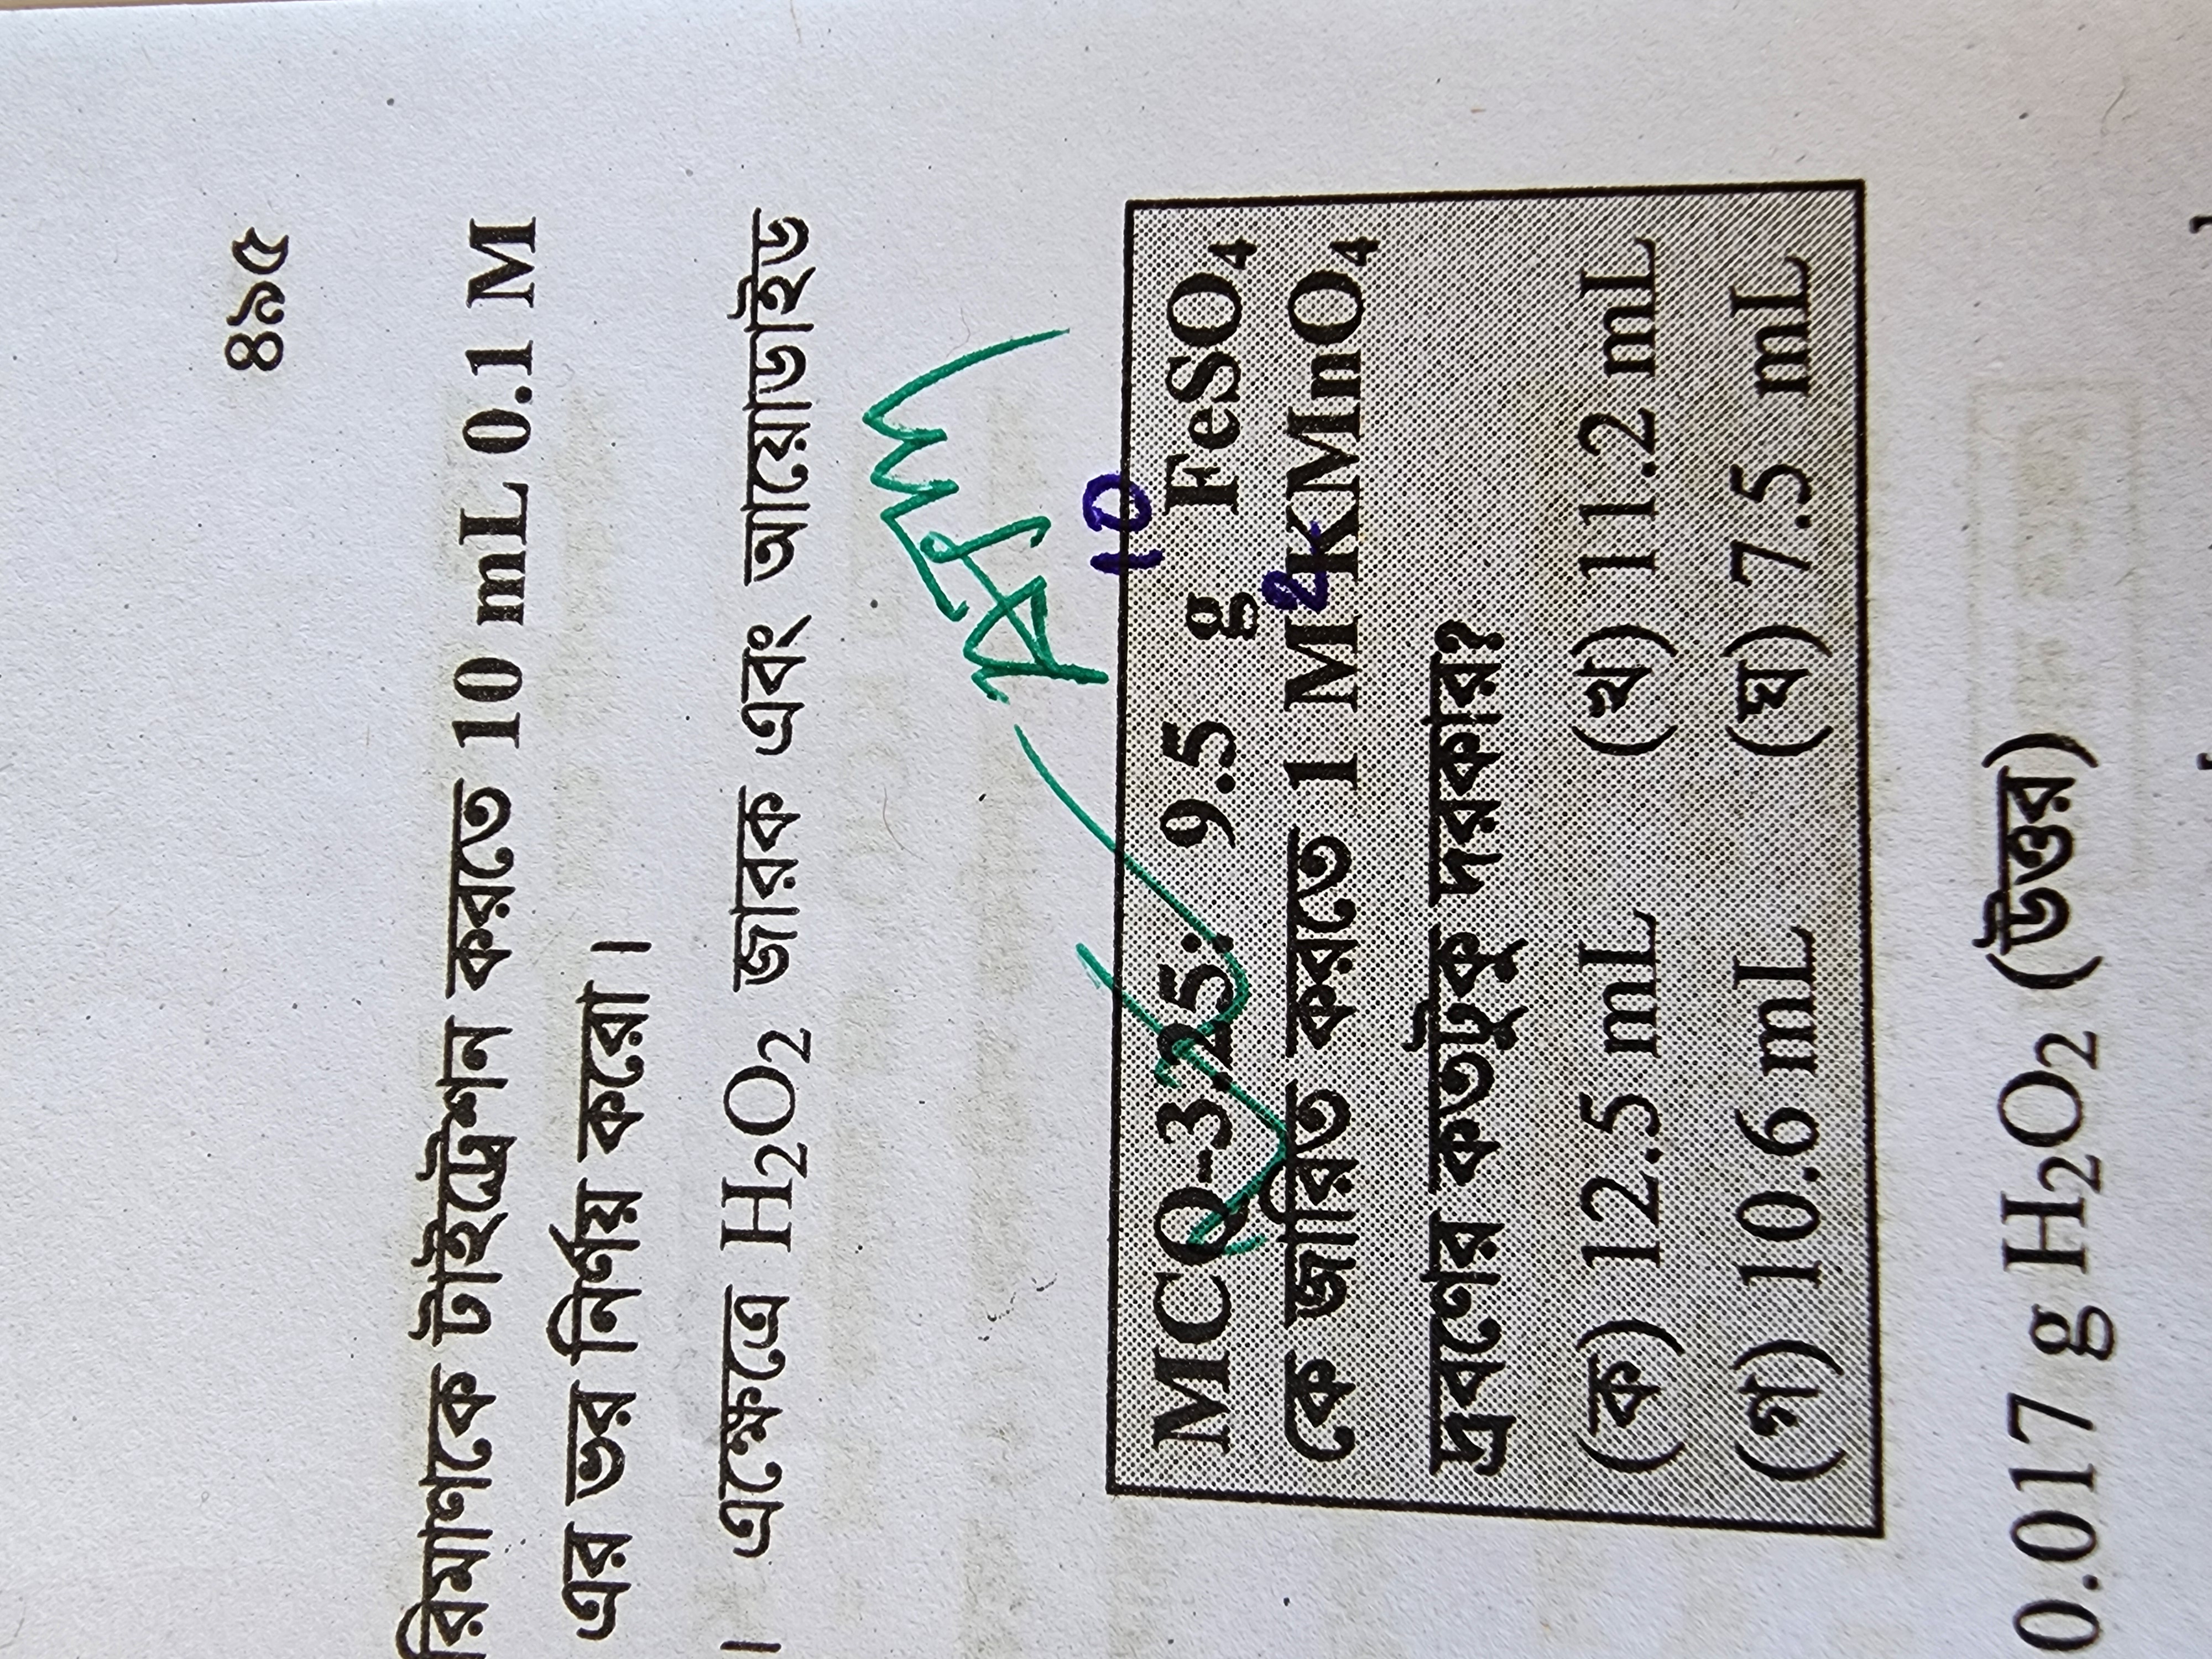 ৪৯৫
রিমাণকে টাইট্রেশন করতে 10 mL 0.1 M
এর ভর নির্ণয় করো।
। এক্ষেত্রে H₂O₂ জারক এবং আয়োডাইড
10
MCQ-3.25: 9.5 g FeSO₄
কে জারিত করতে 1 M 2 KMnO₄
দ্রবণের কতটুকু দরকার?
(ক) 12.5 mL (খ) 11.2 mL
(গ) 10.6 mL (ঘ) 7.5 mL
0.017 g H₂O₂ (উত্তর)